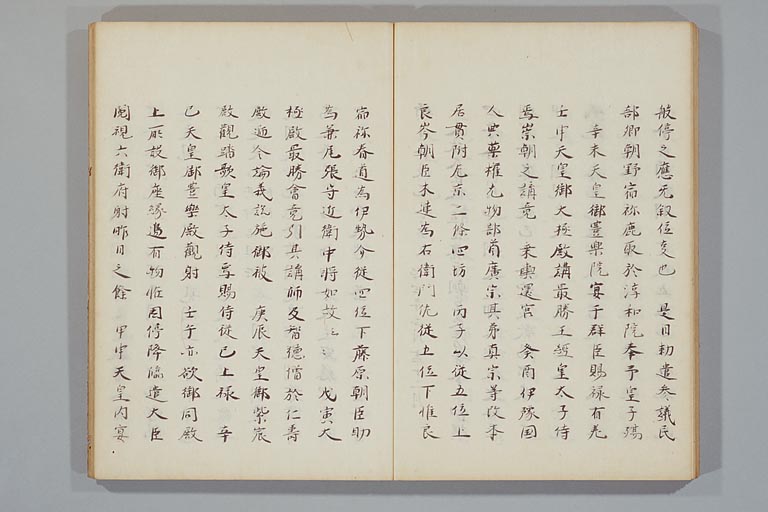 般停之應无叙位矣也　是日勅遣参議民
部卿朝野宿祢鹿取於淳和院奉予皇子殤
辛未天皇御豊楽院宴于群臣賜禄有差
壬申天皇御大極殿講最勝王経皇太子侍
焉崇朝之講竟乗輿還宮　癸酉伊豫国
人典薬権允物部首廣宗其弟真宗等改本
居貫附左京二條四坊　丙子以従五位上
良岑朝臣木連為右衛門佐従五位下惟良
宿祢春道為伊勢介従四位下藤原朝臣助
為兼尾張守近衛中将如故　戊寅大
極殿最勝會竟引其講師及智徳僧於仁壽
殿逓令論義訖施御被　庚辰天皇御紫宸
殿観踏歌皇太子侍焉賜侍従已上禄　辛
巳天皇御豊樂殿觀射　壬午亦欲御同殿
上所設御座縁邊有物恠因停降臨遣大臣
閲視六衛府射昨日之餘　甲申天皇内宴